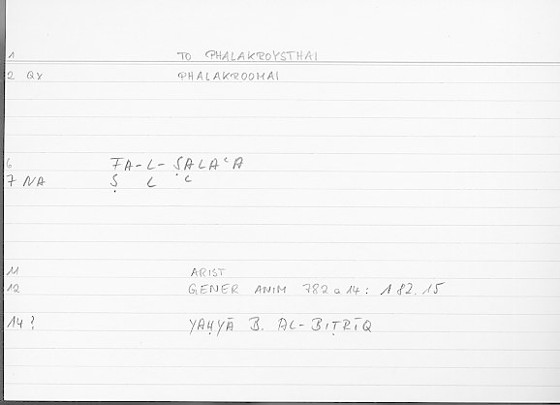 1 TO PHALAKROYSTHAI
2 QY PHALAKROOMAI
6 FA-L-ṢALAʿA
7 NA Ṣ L ʿ
11 ARIST
12 GENER ANIM 782a14: 182.15
14? YAḤYĀ B. AL-BIṬRĪQ